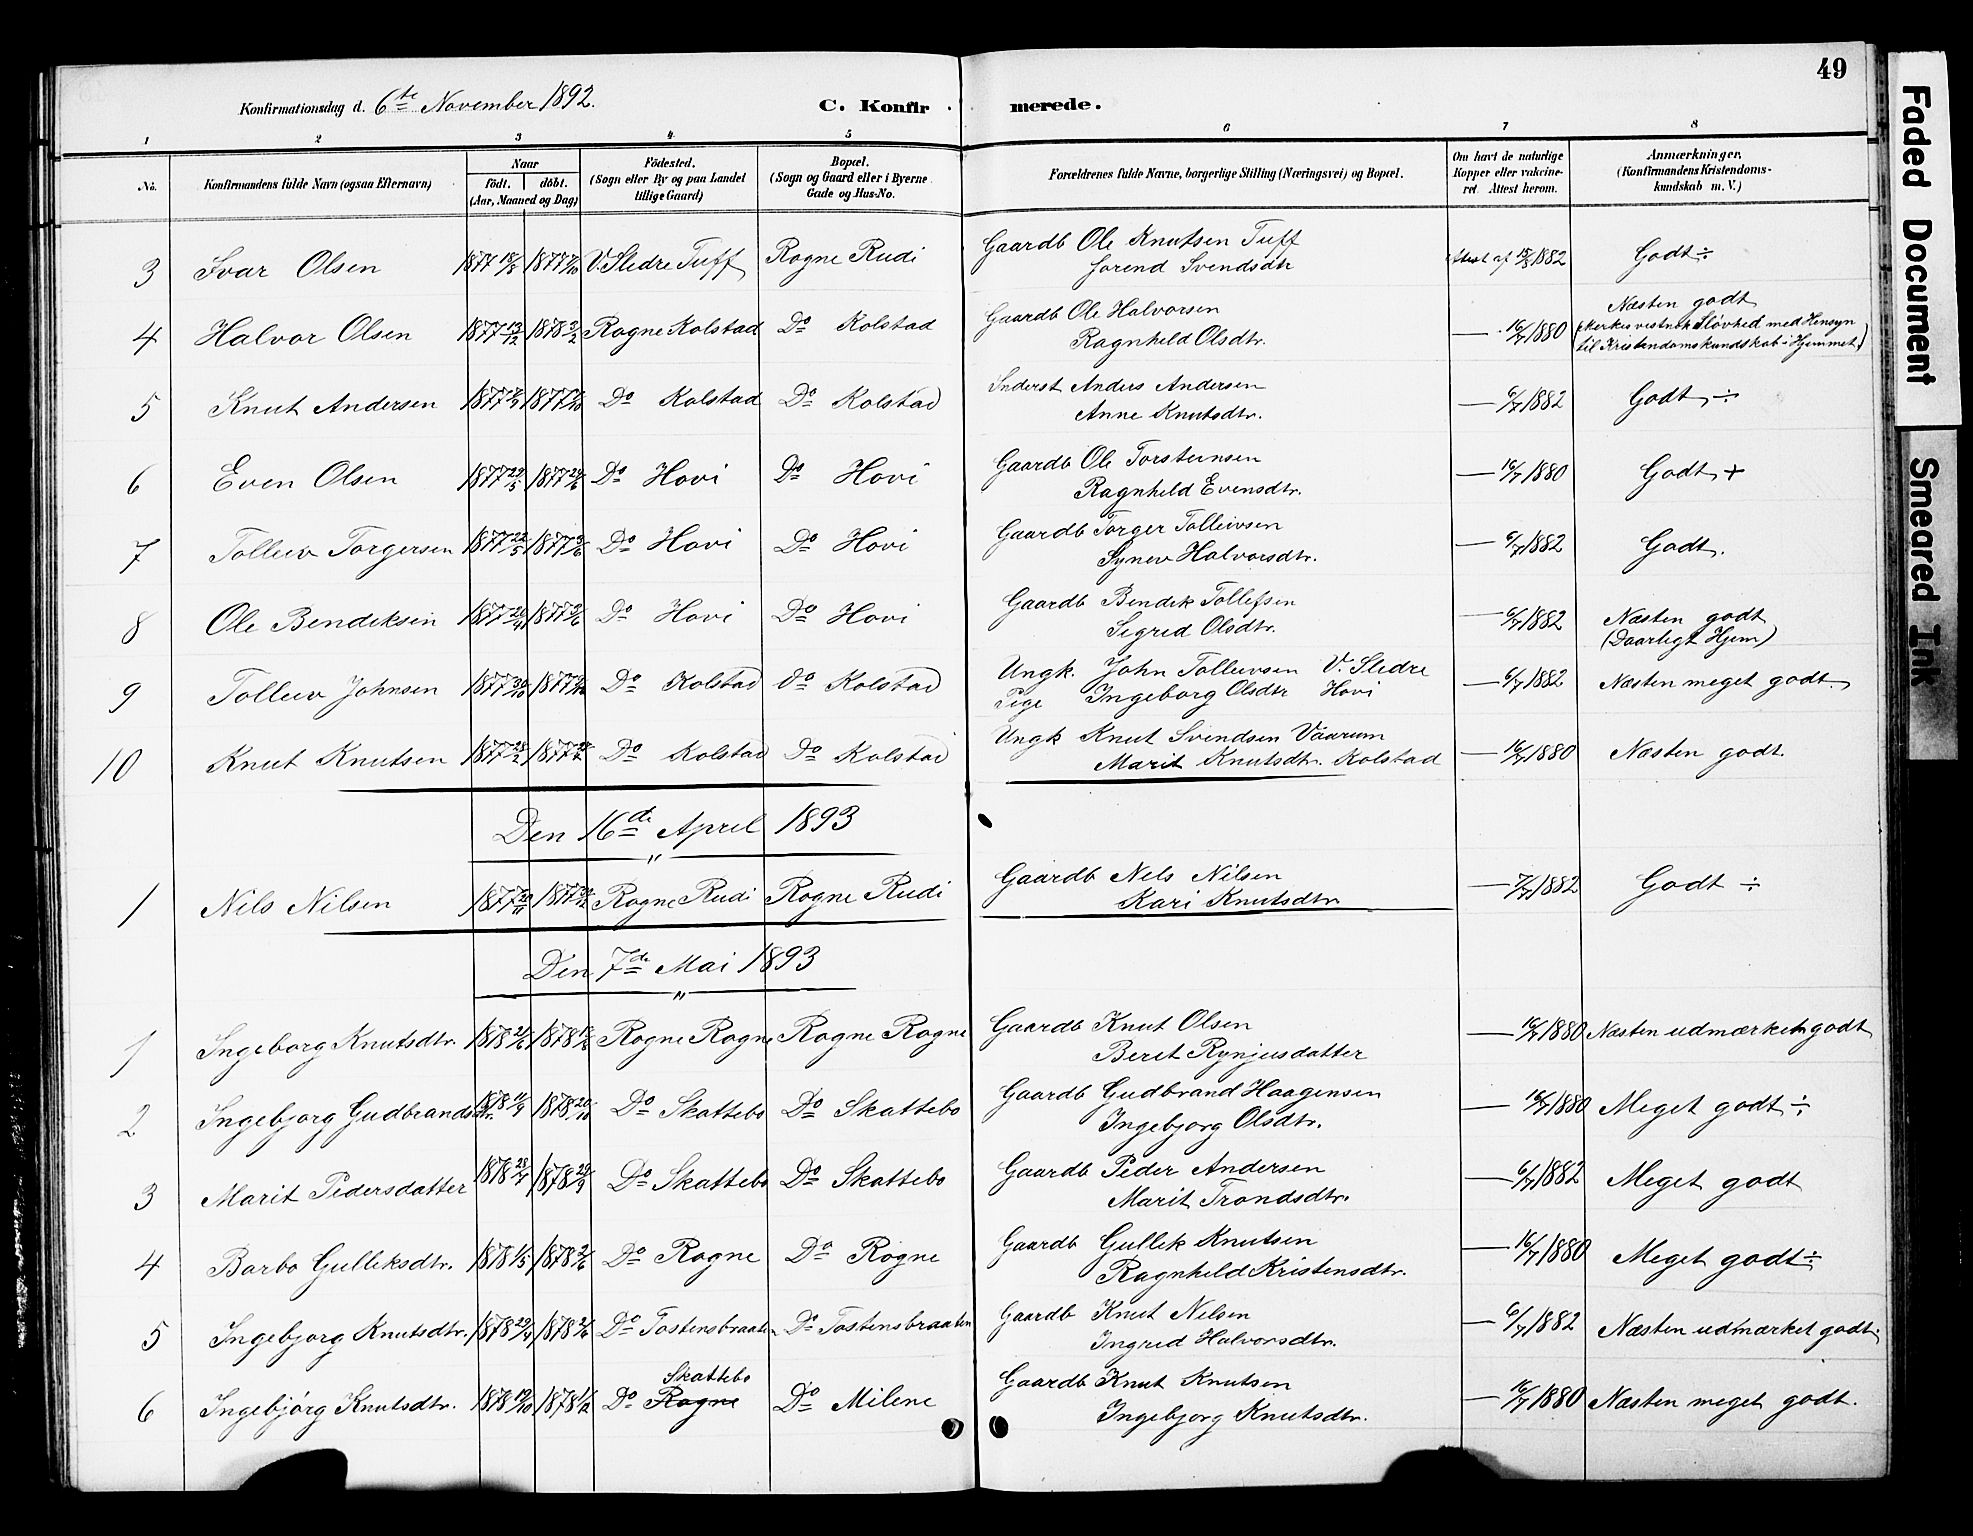 49
Konfirmationsdag d. 6te November 1892. C. Konfirmerede.
1 2 3 4 5 6 7 8
No. Konfirmandens fulde Navn (ogsaa Efternavn) Naar født. døbt. (Aar, Maaned og Dag) Födested. (Sogn eller By og paa Landet tillige Gaard) Bopæl. (Sogn og Gaard eller i Byerne Gade og Hus-No. Forældrenes fulde Navne, borgerlige Stilling (Næringsvei) og Bopæl. Om havt de naturlige Kopper eller vakcineret. Attest herom. Anmærkninger. (Konfirmandens Kristendomskundskab m. V.)
3 Ivar Olsen 1877 1877 V. Slidre Tuff Rogne Rudi Gaardb Ole Knutsen Tuff Attest af 1882 Godt ÷
Jorend Svendsdtr
4 Halvor Olsen 1877 13/12 1878 3/2 Rogne Kolstad Do Kolstad Gaardb Ole Halvorsen — 16/7 1880 Næsten godt
Ragnhild Olsdtr. Sløvhed med Hensyn
til Kristendomskundskab i Hjemmet)
5 Knut Andersen 1877 1877 Do Kolstad Do Kolstad Inderst Anders Andersen — 6/7 1882 Godt ÷
Anne Knutsdtr.
6 Even Olsen 1877 29/5 1877 24/6 Do Hovi Do Hovi Gaardb Ole Torsteinsen — 16/7 1880 Godt +
Ragnhild Evensdtr.
7 Tolleiv Torgersen 1877 22/5 1877 3/6 Do Hovi Do Hovi Gaardb Torger Tolleivsen — 6/7 1882 Godt.
Synev Halvorsdtr.
8 Ole Bendiksen 1877 26/4 1877 3/6 Do Hovi Do Hovi Gaardb Bendik Tollefsen — 6/7 1882 Næsten godt
Sigrid Olsdtr. (Daarligt Hjem)
9 Tolleiv Johnsen 1877 30/10 1877 Do Kolstad do Kolstad Ungk. John Tolleivsen V. Slidre — 6/7 1882 Næsten meget godt.
Pige Ingeborg Olsdtr Hovi
10 Knut Knutsen 1877 1877 Do Kolstad Do Kolstad Ungk Knut Svendsen Vaarum — 16/7 1880 Næsten godt.
Marit Knutsdtr. Kolstad
Den 16de April 1893
"
1 Nils Nilsen 1877 20/11 1877 Rogne Rudi Rogne Rudi Gaardb Nils Nilsen — 7/7 1882 Godt ÷
Kari Knutsdtr.
Den 7de Mai 1893
"
1 Ingeborg Knutsdtr. 1878 1878 Rogne Rogne Rogne Rogne Gaardb Knut Olsen — 16/7 1880 Næsten udmærket godt
Berit Rynjusdatter
2 Ingebjorg Gudbrandsdtr. 1878 11/9 1878 20/10 Do Skattebo Do Skattebo Gaardb Gudbrand Haagensen — 16/7 1880 Meget godt ÷
Ingebjorg Olsdtr.
3 Marit Pedersdatter 1878 1878 29/9 Do Skattebo Do Skattebo Gaardb Peder Andersen — 6/7 1882 Meget godt
Marit Trondsdtr.
4 Barbo Gulleksdtr. 1878 1/5 1878 2/6 Do Rogne Do Rogne Gaardb Gullik Knutsen — 16/7 1880 Meget godt ÷
Ragnhild Kristensdtr.
5 Ingebjorg Knutsdtr. 1878 29/4 1878 2/6 Do Tostensbraaten Do Tostensbraaten Gaardb Knut Nilsen — 6/7 1882 Næsten udmærket godt.
Ingrid Halvorsdtr.
Skattebo
6 Ingebjórg Knutsdtr. 1878 19/10 1878 1/12 Do Rogne Do Milene Gaardb Knut Knutsen — 16/7 1880 Næsten meget godt.
Ingebjorg Knutsdtr.
Faded Document
Smeared Ink